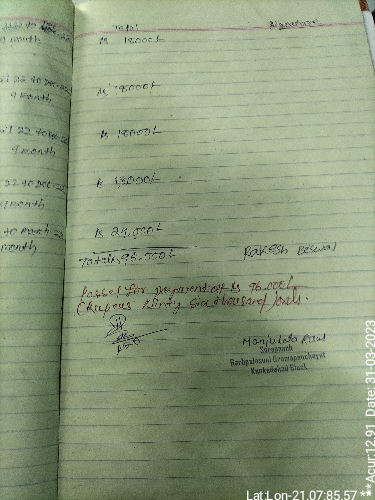 Total Signature
9 month Rs 18000/-
22 to Dec-22
9 month Rs 18000/-
22 to Dec-22
9 month Rs 18000/-
22 to Dec-22
9 month Rs 18000/-
to march-22
month Rs 24,000/-
Total 96,000/- RAKESH BESWAL
Passed for payment of Rs 96,000/-
(Rupees Ninty Six thousand) only.
Manjulata Raut
Sarapanch
Garhpalasuni Gramapanchayat
Kankadahad Block
Lat:Lon-21.07:85.57 *** Acur:12.91 Date: 31-03-2023